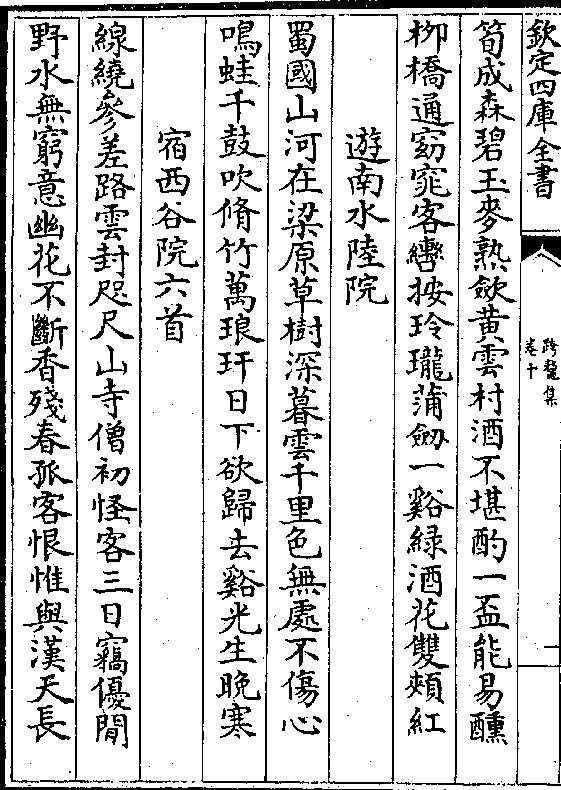 欽定四庫全書
跨鼇集
卷十
一
筍成森碧玉麥熟歛黄雲村酒不堪酌一盃能易醺
柳橋通窈窕客轡按玲瓏蒲劒一谿緑酒花雙頰紅
遊南水陸院
蜀國山河在梁原草樹深暮雲千里色無處不傷心
鳴蛙千鼓吹脩竹萬琅玕日下欲歸去谿光生晚寒
宿西谷院六首
線繞參差路雲封咫尺山寺僧初怪客三日竊優閒
野水無窮意幽花不斷香殘春孤客恨惟與漢天長